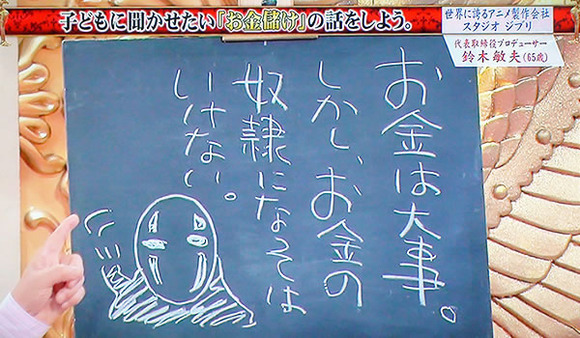 子どもに聞かせたい『お金儲け』の話をしよう。
世界に誇るアニメ製作会社
スタジオ ジブリ
代表取締役プロデューサー
鈴木敏夫(65歳)
お金は大事。
しかし、お金の
奴隷になっては
いけない。